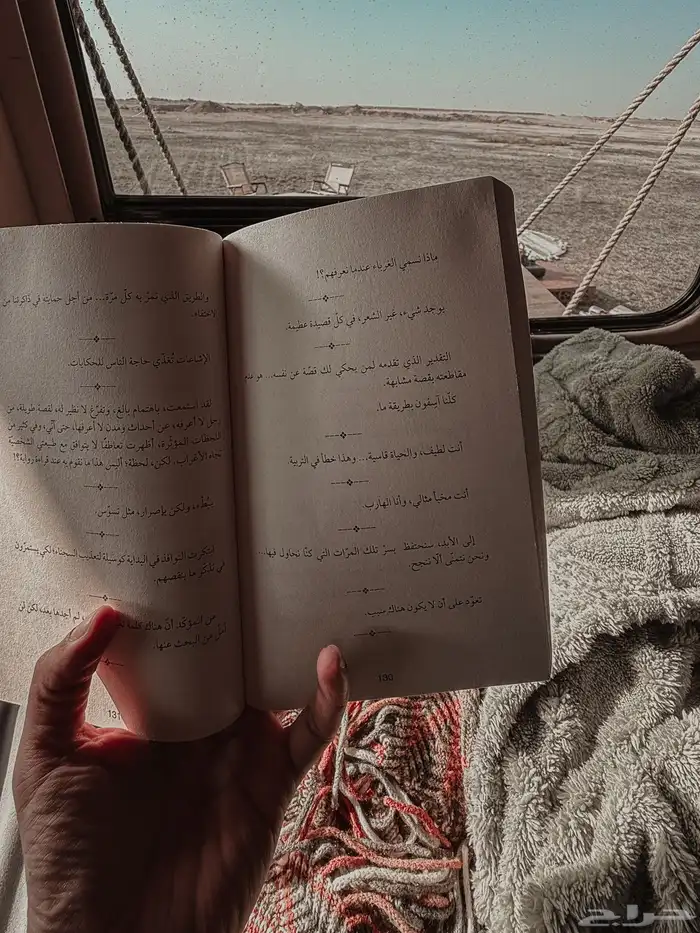 ماذا نسمي الغرباء عندما نعرفهم؟!
يوجد شيء، غير الشعر، في كلّ قصيدة عظيمة.
التقدير الذي تقدمه لمن يحكي لك قصّة عن نفسه... هو عدم
مقاطعته بقصة مشابهة.
كلّنا آسِفُون بطريقة ما.
أنت لطيف، والحياة قاسية... وهذا خطأ في التربية.
أنت مخبأ مثالي، وأنا الهارب.
إلى الأبد، سنحتفظ بسرّ تلك المرّات التي كنّا نحاول فيها...
ونحن نتمنّى ألّا ننجح.
تعوّد على أن لا يكون هناك سبب.
130
والطريق الذي تمرّ به كلّ مرّة... من أجل حمايته في ذاكرتنا من
الاختفاء.
الإشاعات تُغذّي حاجة الناس للحكايات.
لقد استمعت، باهتمام بالغ، وتفرّغ لا نظير له، لقصة طويلة، من
رجل لا أعرفه، عن أحداث ومدن لا أعرفها، حتى أنّي، وفي كثير من
اللحظات المؤثّرة، أظهرت تعاطفًا لا يتوافق مع طبيعتي الشخصية
تجاه الأغراب. لكن، لحظة؛ أليس هذا ما نقوم به عند قراءة رواية؟!
ببُطْء، ولكن بإصرار، مثل تسوّس.
ابتكرت النوافذ في البداية كوسيلة لتعذيب السجناء؛ لكي يستمرّون
في تذكّر ما ينقصهم.
من المؤكّد أنّ هناك كلمة لم أجدها بعد، لكن لن
أملّ من البحث عنها.
131
حراج